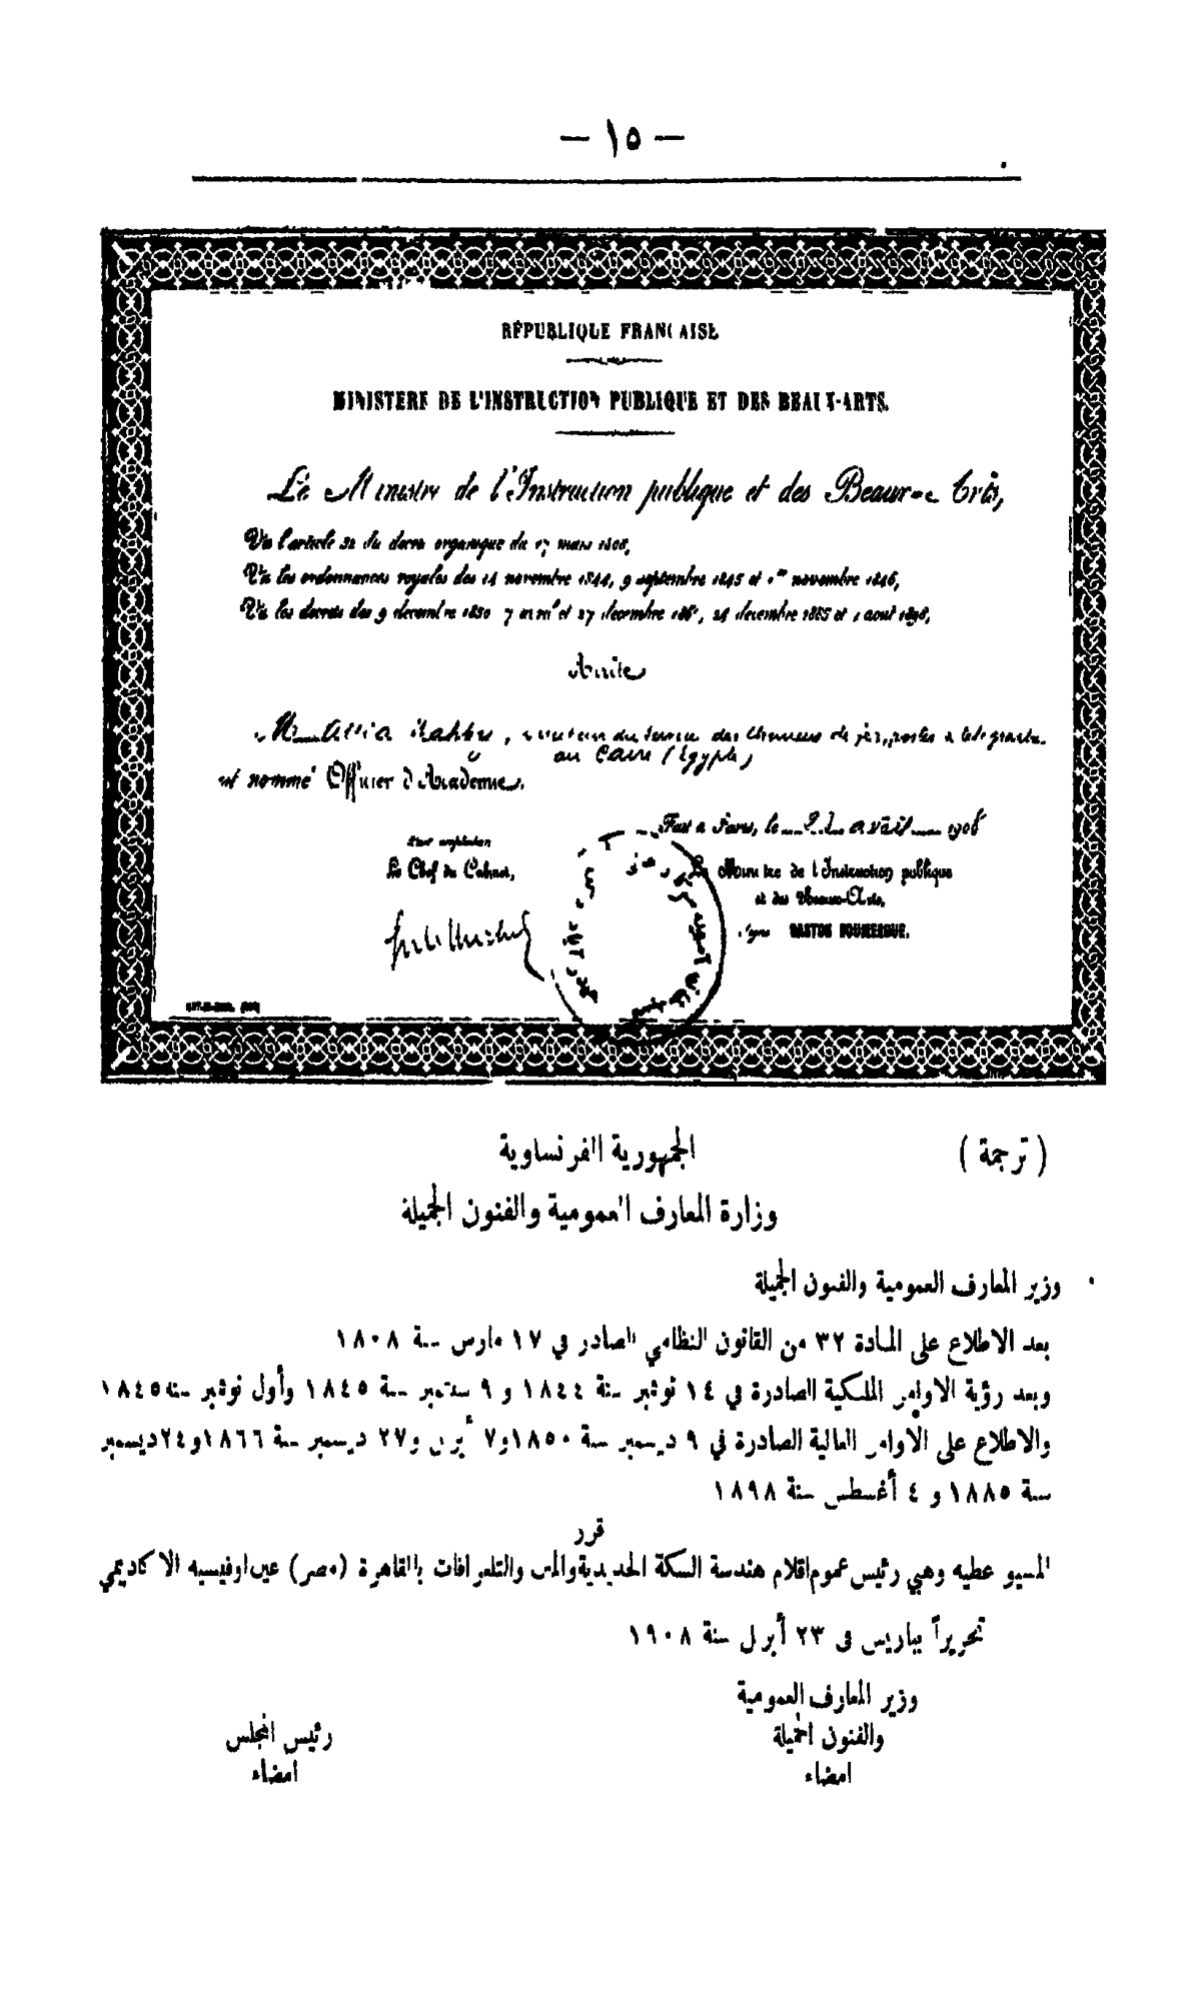 — ١٥ —
RÉPUBLIQUE FRANCAISE
MINISTERE DE L'INSTRUCTION PUBLIQUE ET DES BEAUX-ARTS.
Le Ministre de l'Instruction publique et des Beaux-Arts,
Vu l'article 32 du décret organique du 17 mars 1808,
Vu les ordonnances royales des 14 novembre 1844, 9 septembre 1845 et 1er novembre 1846,
Vu les décrets des 9 décembre 1850 7 avril et 27 décembre 186 , 24 décembre 1885 et 4 aout 1898,
Arrête
M Attia Wahby, du service des Chemins de fer, postes & télégraphes
au Caire (Egypte)
est nommé Officier d'Académie.
Fait à Paris, le avril 1908
Pour ampliation
Le Chef du Cabinet,
Le Ministre de l'Instruction publique
et des Beaux-Arts,
Signé GASTON DOUMERGUE.
( ترجمة )
الجمهورية الفرنساوية
وزارة المعارف العمومية والفنون الجميلة
وزير المعارف العمومية والفنون الجميلة
بعد الاطلاع على المادة ٣٢ من القانون النظامي الصادر في ١٧ مارس سنة ١٨٠٨
وبعد رؤية الاوامر الملكية الصادرة في ١٤ نوفمبر سنة ١٨٤٤ و ٩ سبتمبر سنة ١٨٤٥ وأول نوفمبر سنة ١٨٤٥
والاطلاع على الأوامر العالية الصادرة في ٩ ديسمبر سنة ١٨٥٠ و٧ أبريل و٢٧ ديسمبر سنة ١٨٦٦ و٢٤ ديسمبر
سنة ١٨٨٥ و ٤ أغسطس سنة ١٨٩٨
قرر
المسيو عطيه وهبي رئيس عموم اقلام هندسة السكة الحديدية والتلغرافات بالقاهرة (مصر) عين اوفيسيه الاكاديمي
تحريراً بباريس فى ٢٣ أبريل سنة ١٩٠٨
وزير المعارف العمومية
والفنون الجميلة
امضاء
رئيس المجلس
امضاء